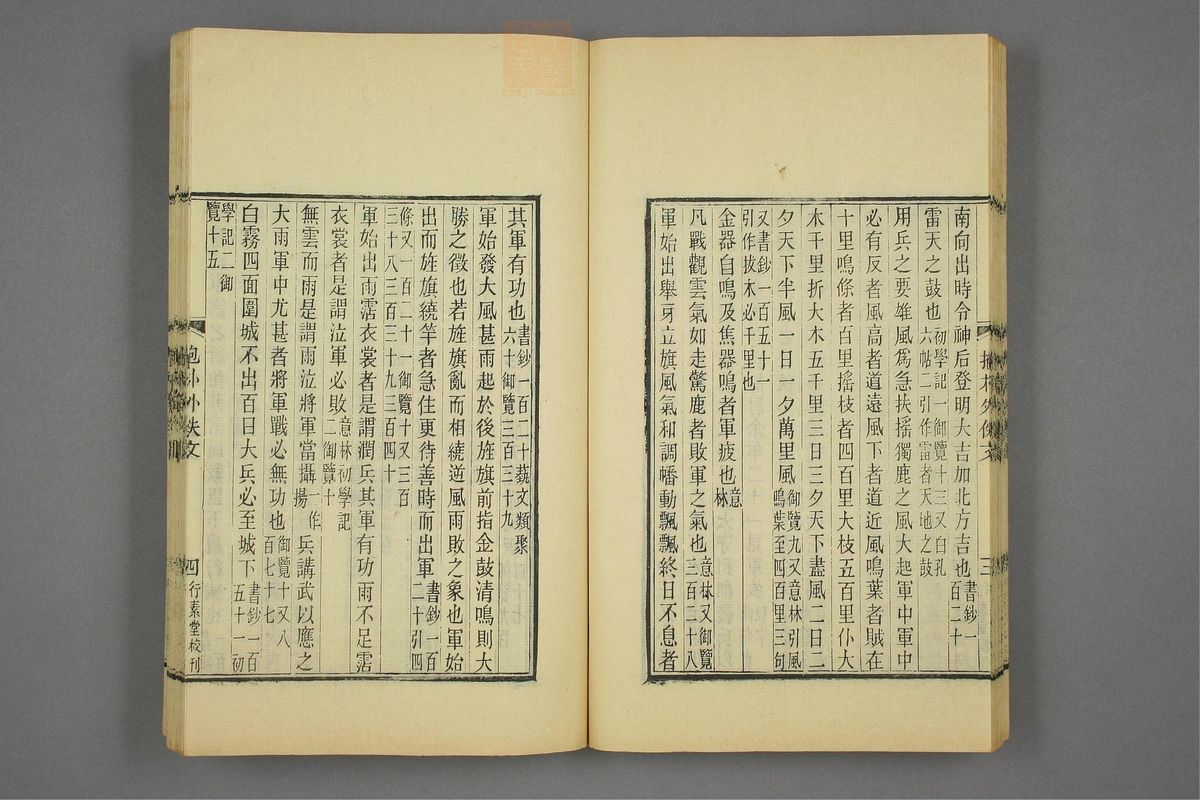 南向出時令神后登明大吉加北方吉也書鈔一百二十
雷天之鼓也初學記一御覽十三又白孔六帖二引作雷者天地之鼓
用兵之要雄風爲急扶搖獨鹿之風大起軍中軍中
必有反者風高者道遠風下者道近風鳴葉者賊在
十里鳴條者百里搖枝者四百里大枝五百里仆大
木千里折大木五千里三日三夕天下盡風二日二
夕天下半風一日一夕萬里風御覽九又意林引風鳴葉至四百里三句
又書鈔一百五十一引作拔木必千里也
金器自鳴及焦器鳴者軍疲也意林
凡戰觀雲氣如走驚鹿者敗軍之氣也意林又御覽三百二十八
軍始出舉牙立旗風氣和調幡動飄飄終日不息者
其軍有功也書鈔一百二十蓺文類聚六十御覽三百三十九
軍始發大風甚雨起於後旌旗前指金鼓清鳴則大
勝之徵也若旌旗亂而相繞逆風雨敗之象也軍始
出而旌旗繞竿者急住更待善時而出軍書鈔一百二十引四
條又一百二十一御覽十又三百三十八三百三十九三百四十
軍始出雨霑衣裳者是謂潤兵其軍有功雨不足霑
衣裳者是謂泣軍必敗意林初學記二御覽十
無雲而雨是謂雨泣將軍當攝一作揚兵講武以應之
大雨軍中尤甚者將軍戰必無功也御覽十又八百七十七
白霧四面圍城不出百日大兵必至城下書鈔一百五十一初
學記二御覽十五
四
行素堂校刊